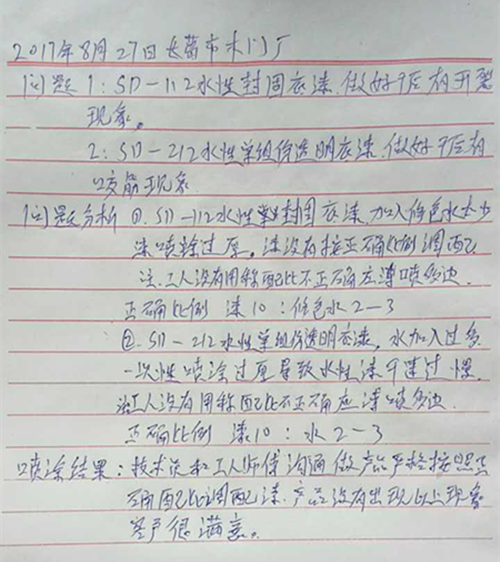 2017年8月27日长葛市木门厂
问题1:SD-112水性封固底漆.做好了后有开裂
现象。
2:SD-212水性单组份透明底漆.做好了后有
咬筋现象
问题分析①.SD-112水性封固底漆.加入修色水太少
漆喷涂过厚。漆没有按正确比例调配
注.工人没有用称配比不正确应薄喷多边.
正确比例 漆10:修色水2-3
②.SD-212水性单组份透明底漆。水加入过多
一次性喷涂过厚导致水性漆干速过慢.
注工人没有用称配比不正确应薄喷多边.
正确比例 漆10:水2-3
喷涂结果:技术员和工人师傅沟通做产品严格按照正
确配比调配漆.产品没有出现以上现象
客户很满意。